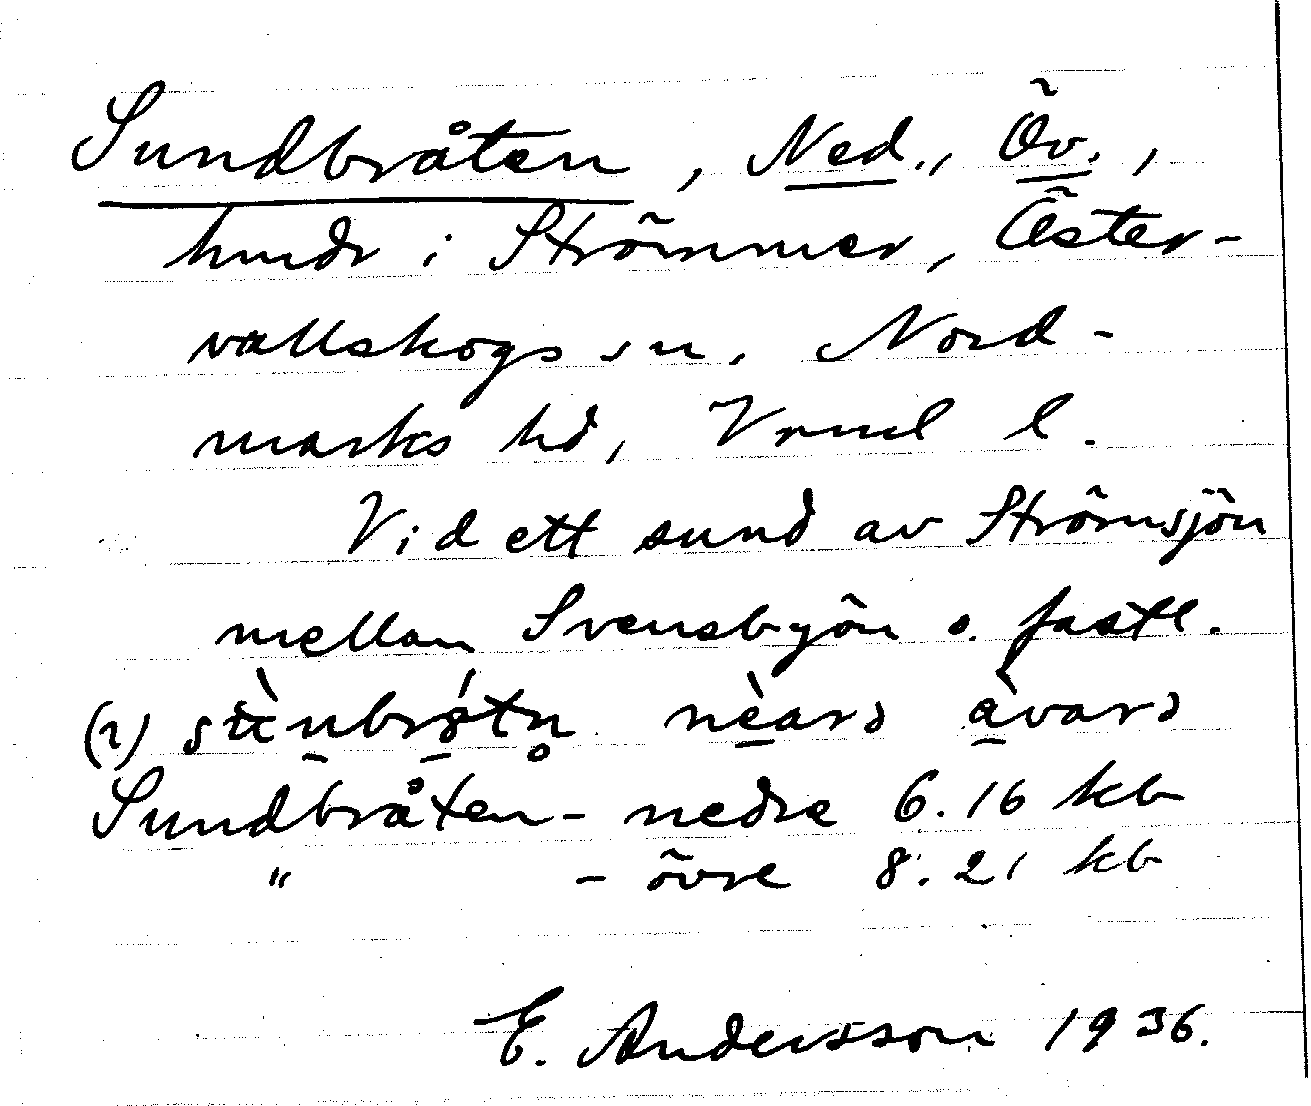 Sundbråten, Ned., Öv.,
hmdr i Strömmer, Öster-
vallskogs sn. Nord-
marks hd, Vrml l.
Vid ett sund av Strömsjön
mellan Svensbyön o. fastl.
(1) nèard àvard
Sundbråten - nedre 6.16 kb
" - övre 8.21 kb
E. Andersson 1936.